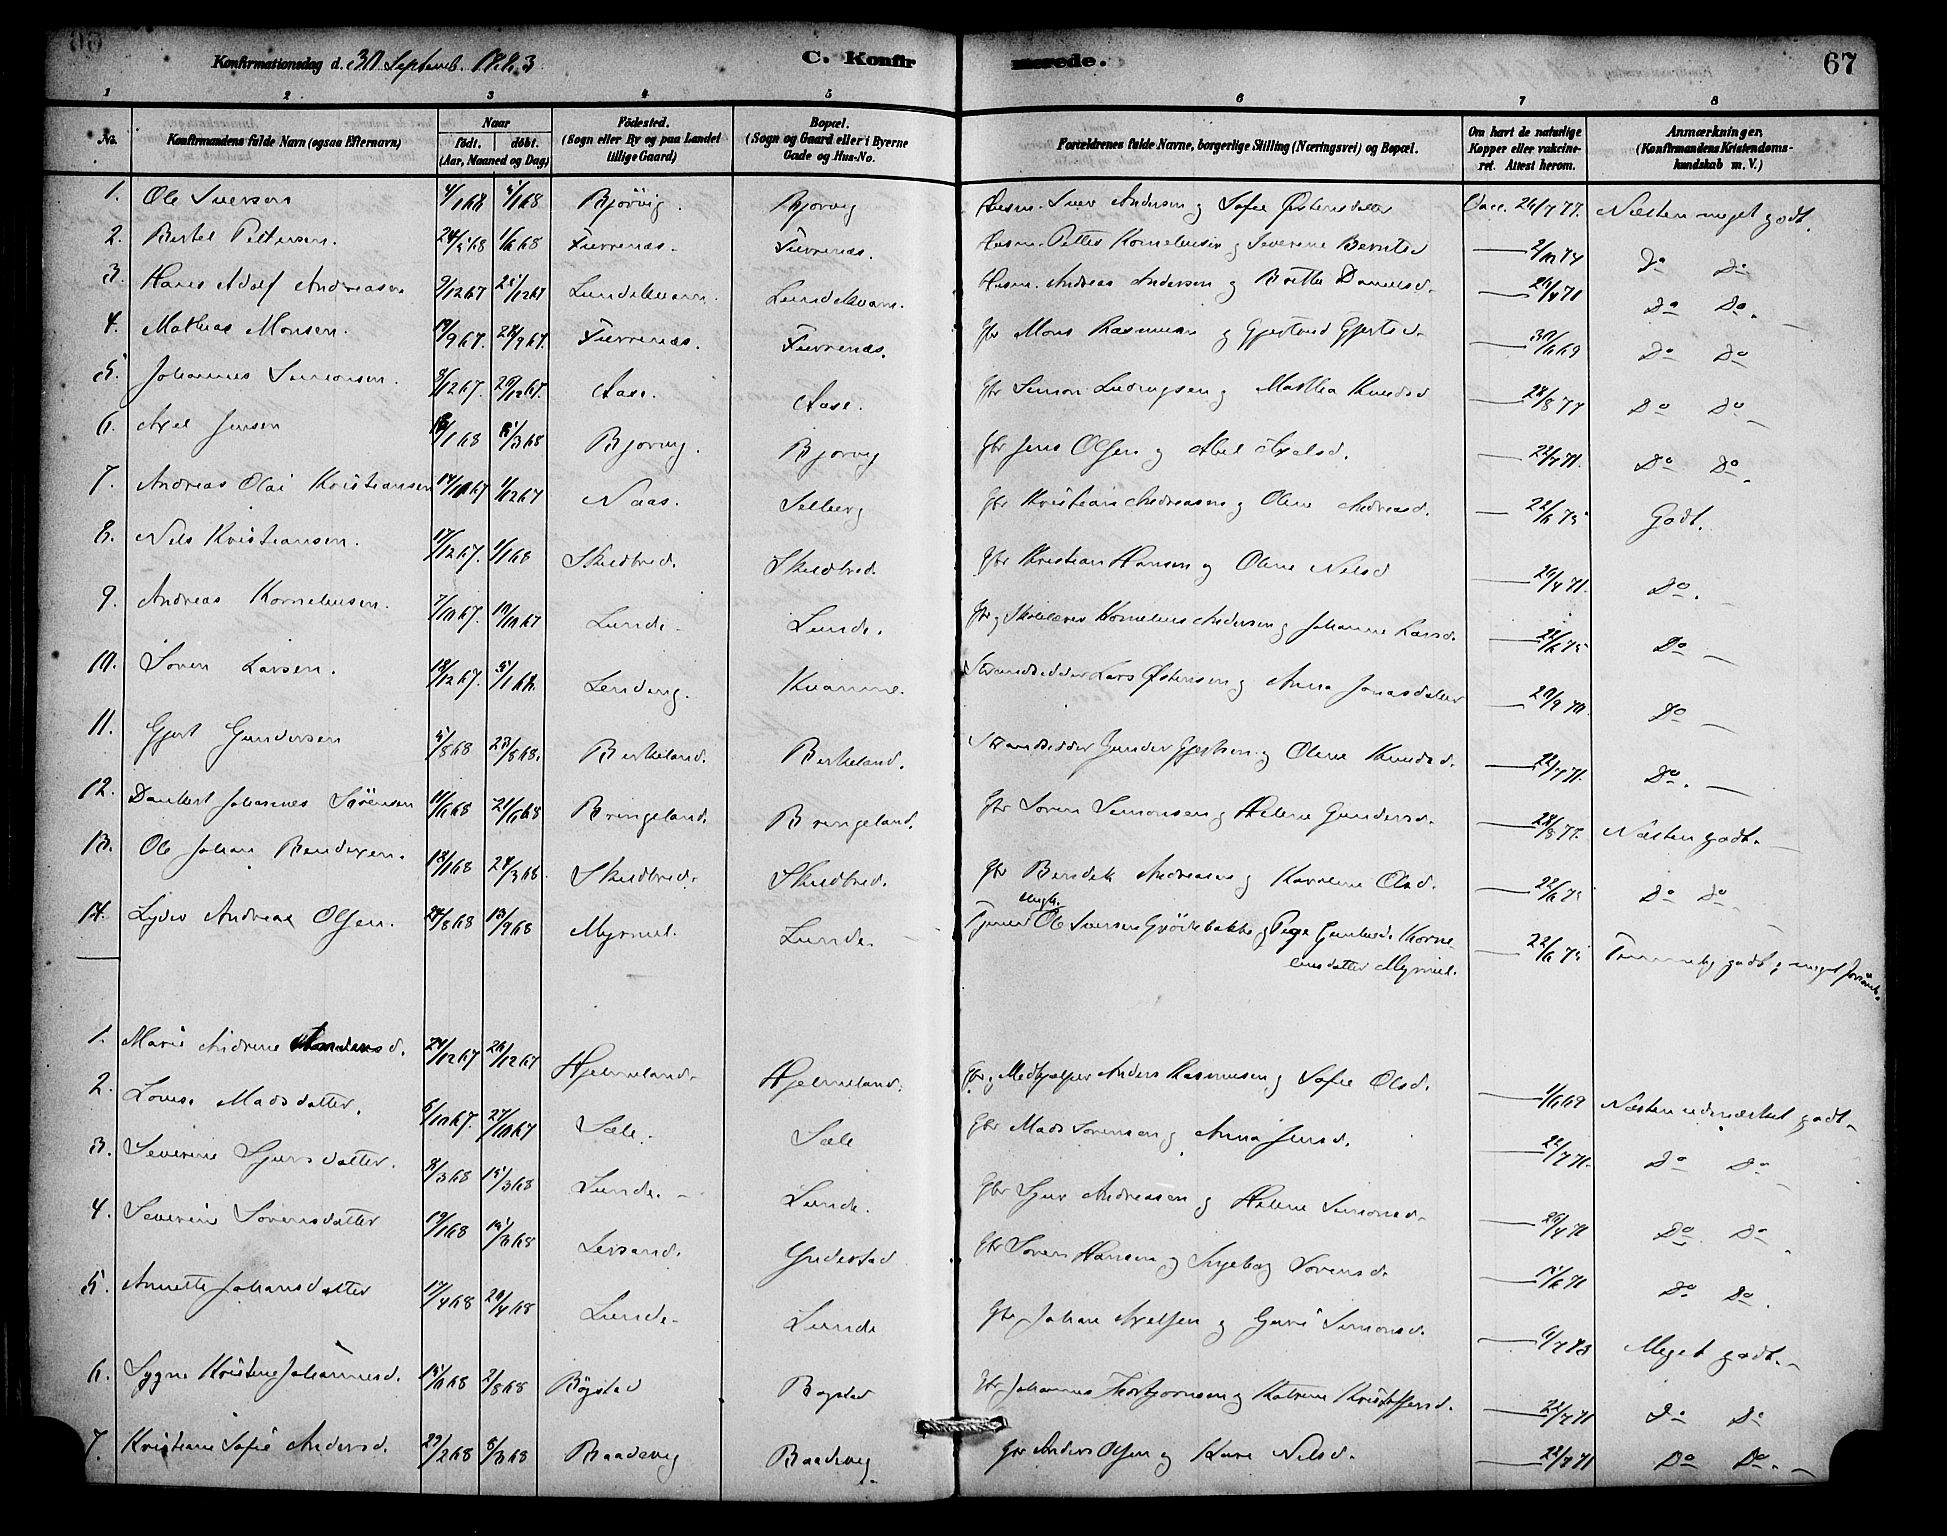 Konfirmationsdag d. 30 Septemb. 1883
C. Konfirmerede.
67
1 2 3 4 5 6 7 8
No. Konfirmandens fulde Navn (ogsaa Efternavn) Naar født. døbt. (Aar, Maaned og Dag) Fødested. (Sogn eller By og paa Landet tillige Gaard) Bopæl. (Sogn og Gaard eller i Byerne Gade og Hus-No. Forældrenes fulde Navne, borgerlige Stilling (Næringsvei) og Bopæl. Om havt de naturlige Kopper eller vakcineret. Attest herom. Anmærkninger. (Konfirmandens Kristendomskundskab m. V.)
1. Ole Iversen 4/1 68 Bjørvig. Bjørvig Husm. Iver Andersen og Sofie Østensdatter Vacc. 26/7 77. Næsten meget godt.
2. Bertel Pettersen. 24/5 68 1/6 68 Furrenæs. Furrenæs. Husm. Petter Kornelius og Severine Berntsd 2/10 74 Do Do
3. Hans Adolf Andreasen 9/12 67 25/12 67 Lundekvam. Lundekvam. Husm. Andreas Andersen og Britta Danielsd. 26/4 71 Do Do.
4. Mathias Monsen. 19/9 67. 29/9 67. Furrenæs. Furrenæs. Gbr Mons Rasmusen og Gjertrud Gjertsd. 30/6 69 Do Do
5. Johannes Simonsen. 3/12 67. 26/12 67. Aase. Aase. Gbr Simon Ludvigsen og Marthа Knudsd 28/8 77 Do Do
6. Axel Jensen 1 68 3 68 Bjørvig. Bjorvig Gbr Jens Olsen og Abel Axelsd. 22/7 71. Do Do
7. Andreas Olai Kristiansen 14/10 67 1/12 67 Naas. Selberg Gbr Kristian Andreasen og Oline Andreasd. 22/6 75 Godt.
8. Nils Kristiansen. 17/12 67. 1/1 68 Skudbred. Skudbred. Gbr Kristian Hansen og Oline Nilsd 26/4 71. Do.
9. Andreas Korneliusen. 7/10 67. 10/10 67 Lunde Lunde. Gbr og Skolelærer Kornelius Andersen og Johanne Larsd. 22/6 75 Do
10. Søren Larsen. 18/12 67. 5/1 68. Lending. Kvamme. Strandsidder Lars Østensen og Anna Jonasdatter 29/9 70. Do
11. Gjert Gundersen 5/8 68 23/8 68. Birkeland. Birkeland. Strandsidder Gunder Gjertsen og Oline Knudsd. 22/7 71. Do.
12. Dankert Johannes Sørensen 11/6 68 21/6 68 Bringeland. Bringeland. Gbr Søren Simonsen og Helene Gundersd. 28/8 77. Næsten godt.
13. Ole Johan Bendixen. 18/1 68 24/3 68. Skudbred. Skudbred. Gbr Bendik Andreasen og Karoline Olsd. 22/6 75 Do Do
14. Lyder Andreas Olsen. 24/8 68 13/9 68 Myrmel. Lunde. Ole Iversen Grødebakke og Pige Gunhild Korneliusdatter Myrmel. 22/6 75 godt, meget
1. Marie Andrine Andersd. 24/12 67 26/12 67 Hjelmeland. Hjelmeland. Gbr og Medhjælper Anders Rasmusen og Sofie Olsd. 1/6 69 Næsten udmærket godt
2. Lovise Madsdatter. 6/10 67. 27/10 67 Sæle. Sæle Gbr Mads Sørensen og Anna Jensd. 22/7 71. Do Do
3. Severine Sjursdatter. 8/3 68 15/3 68 Lunde. Lunde. Gbr Sjur Andreasen og Helene Simonsd. 26/4 71 Do Do
4. Severine Sørensdatter 19/1 68 3 68 Leirand. Yndestad Gbr Søren Hansen og Ingeborg Sørensd. 6 71 Do Do.
5. Annette Johansdatter 17/4 68 29/4 68 Lunde Lunde Gbr Johan Axelsen og Guri Simonsd. 6/7 73 Meget godt.
6. Sygni Kristine Johannesd. 15/6 68 2/8 68 Bøgstad Bøgstad Gbr Johannes Thorbjørnsen og Katrine Kristoffersd. 22/7 71 Do Do
7. Kristiane Sofie Andersd. 23/2 68 8/3 68 Baadevig Baadevig. Gbr Anders Olsen og Kari Nilsd. 22/7 71 Do Do.